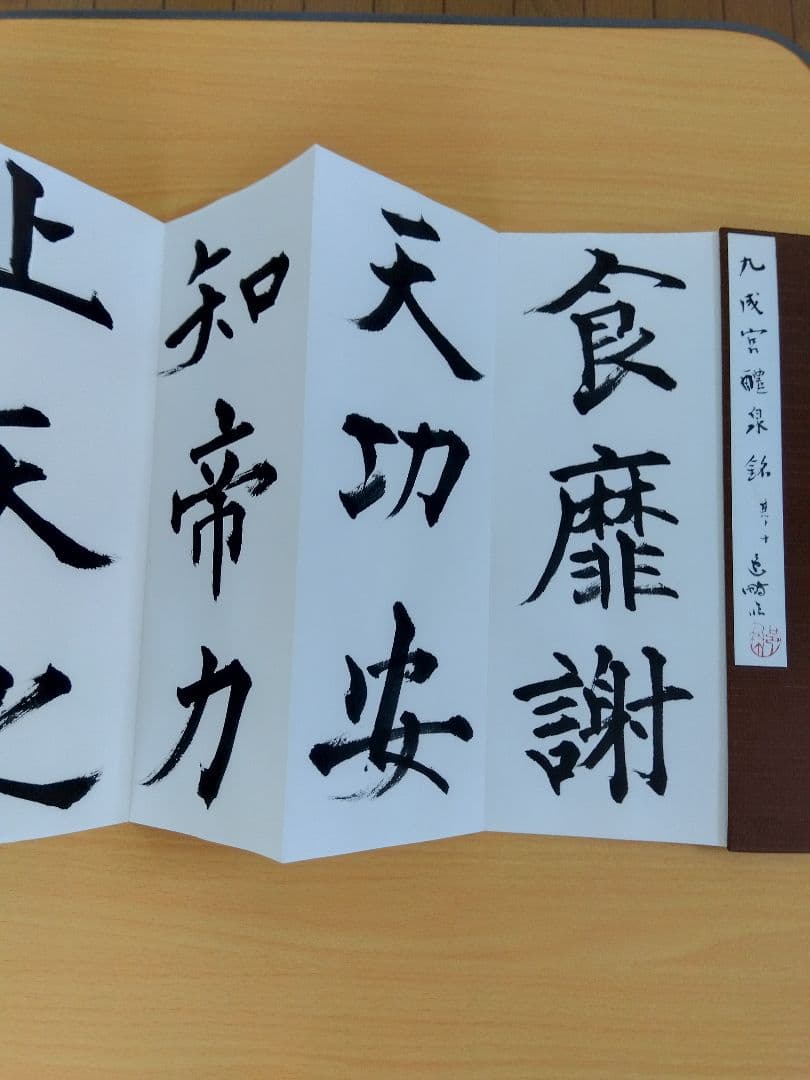 九成宮醴泉銘 其十
食靡謝
天功安
知帝力
上天之